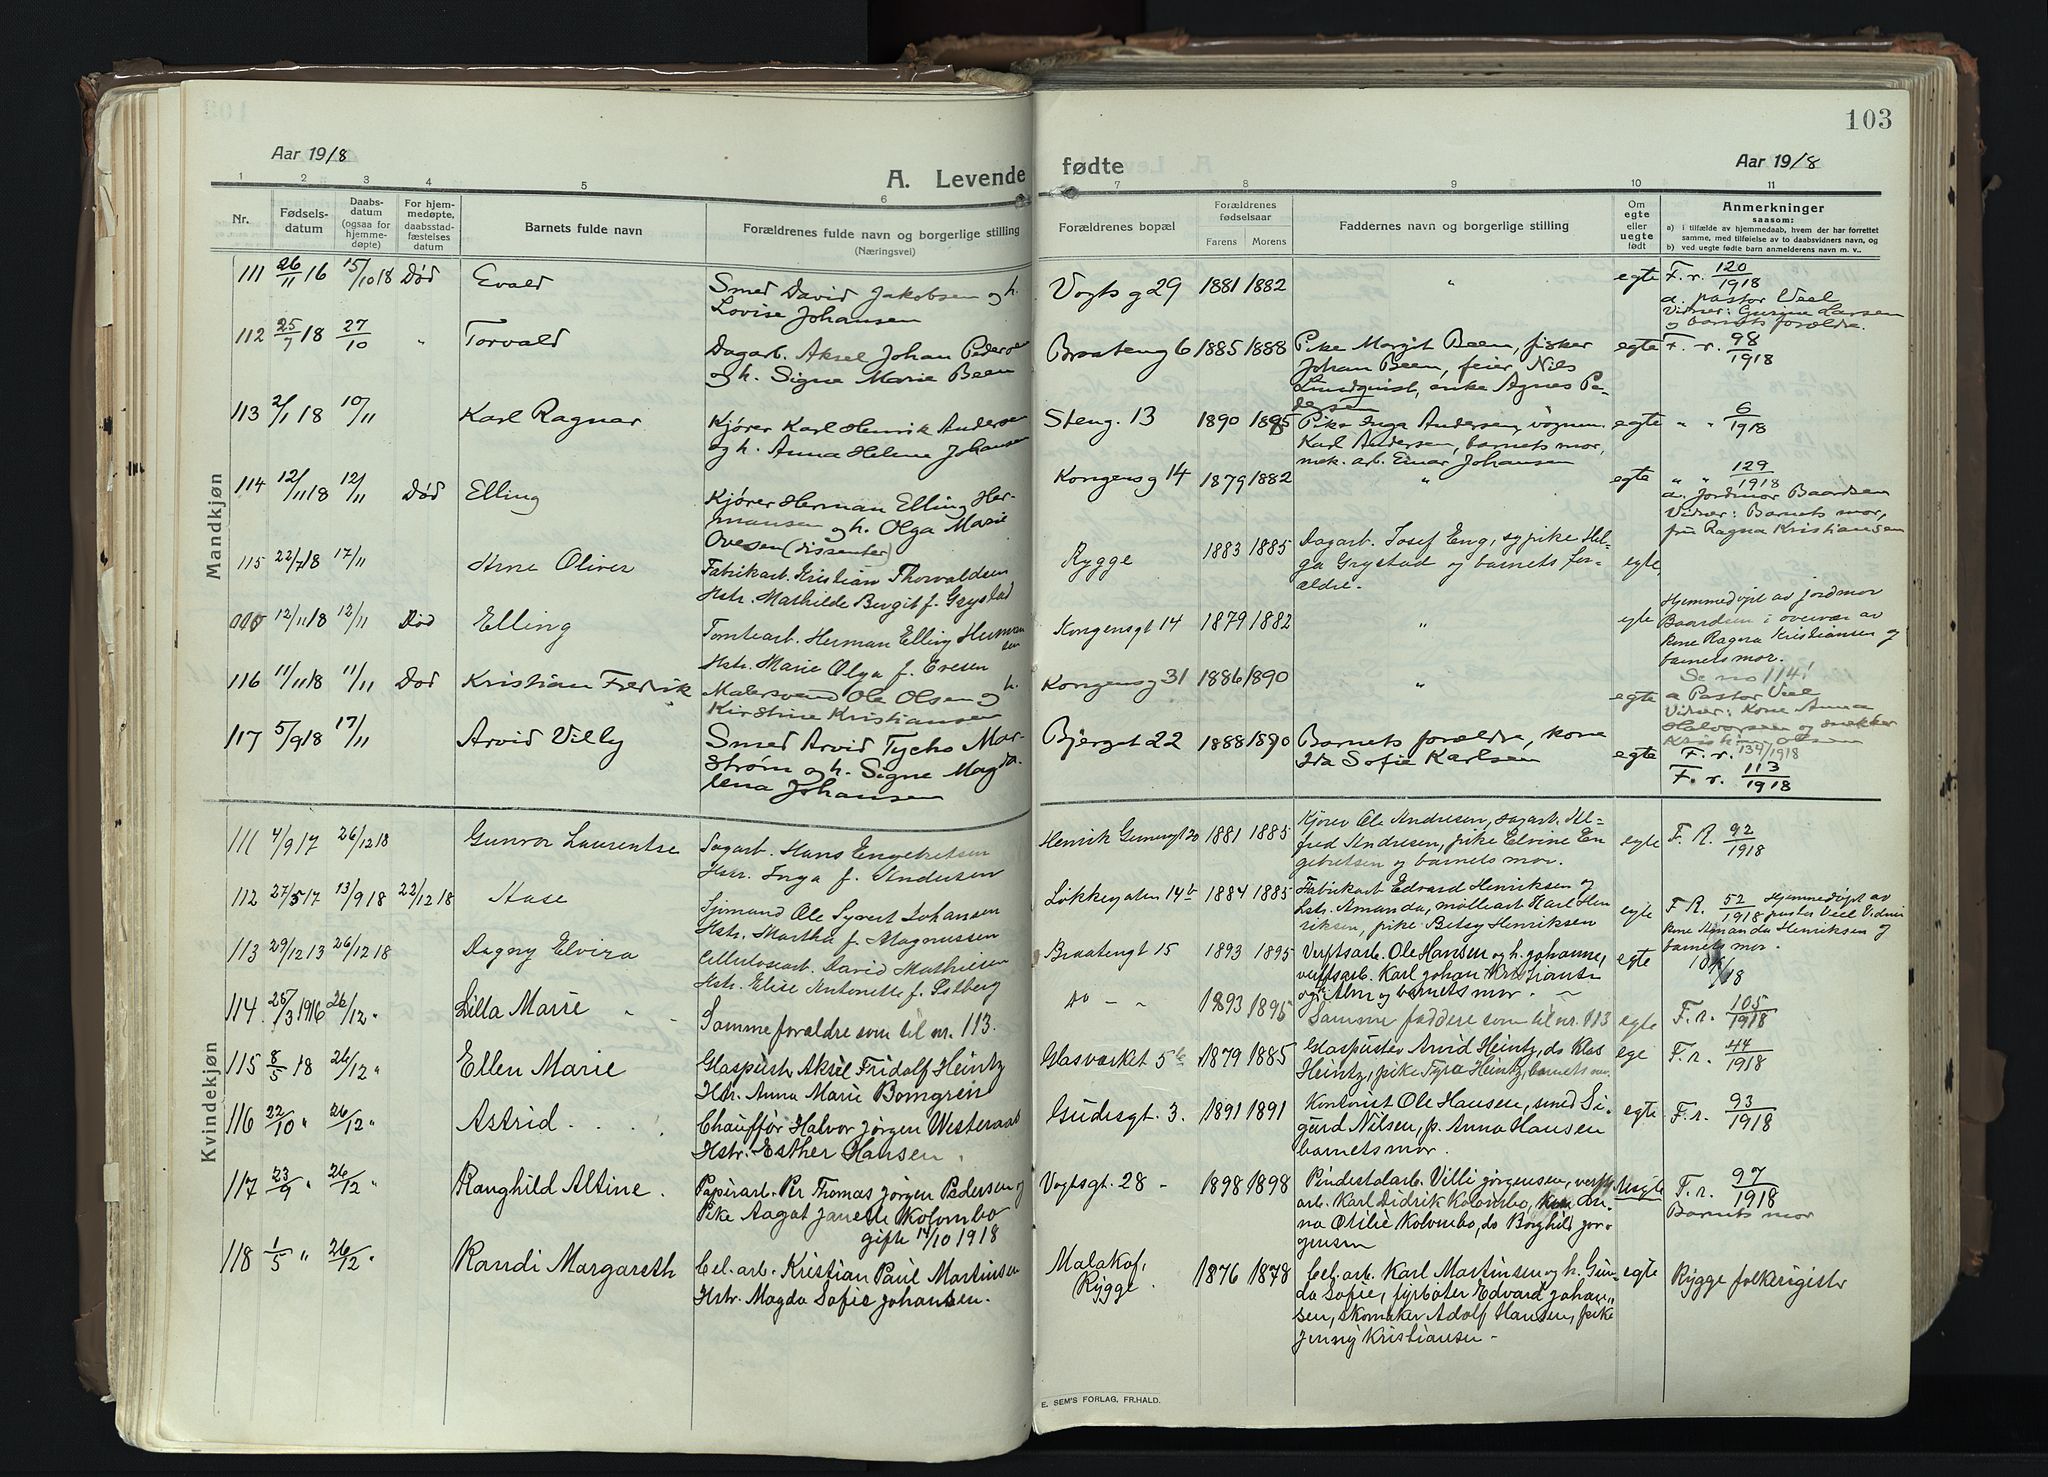 103
Aar 1918
A. Levende fødte
Aar 1918
1 2 3 4 5 6 7 8 9 10 11
Nr.
Fødsels-
datum
Daabs-
datum
(ogsaa for
hjemme-
døpte)
For hjem-
medøpte,
daabsstad-
fæstelses
datum
Barnets fulde navn
Forældrenes fulde navn og borgerlige stilling
(Næringsvei)
Forældrenes bopæl
Forældrenes
fødselsaar
Farens Morens
Faddernes navn og borgerlige stilling
Om
egte
eller
uegte
født
Anmerkninger
saasom:
a) i tilfælde av hjemmedaab, hvem der har forrettet
samme, med tilføielse av to daabsvidners navn, og
b) ved uegte fødte barn anmelderens navn m. v..
Mandkjøn
111 26/11 16 15/10 18 Død Evald
Smed David Jakobsen og h.
Lovise Johansen
Vogts g 29 1881 1882 " egte F. r. 120/1918
a. pastor Veel
Vidner: Gurine Larsen
og barnets forældre.
112 25/7 18 27/10 " Torvald
Dagarb. Aksel Johan Pedersen
og h. Signe Marie Been
Braateng 6 1885 1888 Pike Margit Been, fisker
Johan Been, feier Nils
Lundquist, enke Agnes Pe-
dersen
egte F. r. 98/1918
113 2/1 18 10/11 Karl Ragnar
Kjører Karl Henrik Andersen
og h. Anna Helene Johansen
Steng. 13 1890 1895 Pike Inga Andersen, vognm.
Karl Andersen, barnets mor,
mek. arb. Einar Johansen
egte " " 6/1918
114 12/11 18 12/11 Død Elling
Kjører Herman Elling Her-
mansen og h. Olga Marie
Ovesen (dissenter)
Kongens g 14 1879 1882 " egte " " 129/1918
a. Jordmor Baardsen
Vidner: Barnets mor,
fru Ragna Kristiansen
115 22/7 18 17/11 Arne Oliver
Fabrikarb. Kristian Thorvaldsen
Hstr. Mathilde Bergit f. Grystad
Rygge 1883 1885 Dagarb. Josef Eng, sypike Hel-
ga Grystad og barnets for-
ældre.
egte
12/11 18 12/11 Død Elling
Tomtearb. Herman Elling Herman
sen
Hstr. Marie Olga f. Evesen
Kongensgt 14 1879 1882 " egte
Hjemmedøpt av jordmor
Baardsen i overvær av
kone Ragna Kristiansen og
barnets mor.
Se no 114!
116 11/11 18 11/11 Død Kristian Fredrik
Malersvend Ole Olsen og h.
Kirstine Kristiansen
Kongens g 31 1886 1890 " egte
a Pastor Veel
Vidner: Kone Anna
Halvorsen og snekker
Kristian Olsen
F. r. 134/1918
117 5/9 18 17/11 Arvid Villy
Smed Arvid Tycho Mor-
strøm og h. Signe Magda-
lena Johansen
Bjerggt 22 1888 1890 Barnets forældre, kone
Ida Sofie Karlsen
egte
F. r. 113/1918
Kvindekjøn
111 4/9 17 26/12 18 Gunvor Laurentse
Sagarb. Hans Engebretsen
Hstr. Inga f. Andersen
Henrik Gernersgt 20 1881 1885 Kjører Ole Andresen, sagarb. Al-
fred Andresen, pike Elvine En
gebretsen og barnets mor.
egte F. R. 92/1918
112 27/5 17 13/9 18 22/12 18 Aase
Sjømand Ole Syvert Johansen
Hstr. Martha f. Magnussen
Løkkegaten 14b 1884 1885 Fabrikarb Edvard Henriksen og
hstr. Amanda, møllearb Karl Hen
riksen, pike Betsy Henriksen
egte F. R. 52/1918 Hjemmedøpt av
pastor Veel Vidner
kone Amanda Henriksen og
barnets mor.
113 29/12 13 26/12 18 Dagny Elvira
Cellulosearb. David Mathisen
Hstr. Elise Antonette f. Østberg
Braatengt 15 1893 1895 Verftsarb. Ole Hansen og h. Johanne,
verftsarb. Karl Johan Kristianse
og h. Alm og barnets mor.
egte
114 26/3 1916 26/12 " Lilla Marie
Samme forældre som til nr. 113.
Do 1893 1895 Samme faddere som til nr. 113 egte F. r. 105/1918
115 8/5 18 26/12 " Ellen Marie
Glaspust Aksel Fridolf Heintz
Hstr. Anna Marie Bomgren
Glasværket 5 1879 1885 Glaspuster Arvid Heintz, do Klas
Heintz, pike Tyra Heintz, barnets mor
ege F. r. 44/1918
116 22/10 " 26/12 " Astrid
Chauffør Halvor Jørgen Westeraas
Hstr. Esther Hansen.
Gudesgt. 3. 1891 1891 Kontorist Ole Hansen, smed Si-
gurd Nilsen, p. Anna Hansen
barnets mor.
egte F. r. 93/1918
117 23/9 " 26/12 " Ranghild Altine.
Papirarb. Per Thomas Jørgen Pedersen og
Pike Aagot Janette Kolombo
gifte 14/10 1918
Vogtsgt. 28 1898 1898 Pindestolarb. Villi Jørgensen, verfts
arb. Karl Didrik Kolombo,
na Otilie Kolombo, do Borghild Jør-
gensen
Uegte F. r. 97/1918
Barnets mor
118 1/5 " 26/12 " Randi Margareth
Cel. arb. Kristian Paul Martinsen
Hstr. Magda Sofie Johansen.
Malakof,
Rygge. 1876 1878 Cel. arb. Karl Martinsen og h. Gun-
da Sofie, fyrbøter Edvard Johan-
sen, skomaker Adolf Hansen, pike
Jenny Kristiansen
egte Rygge folkeregister
E. SEM'S FORLAG, FR.HALD.